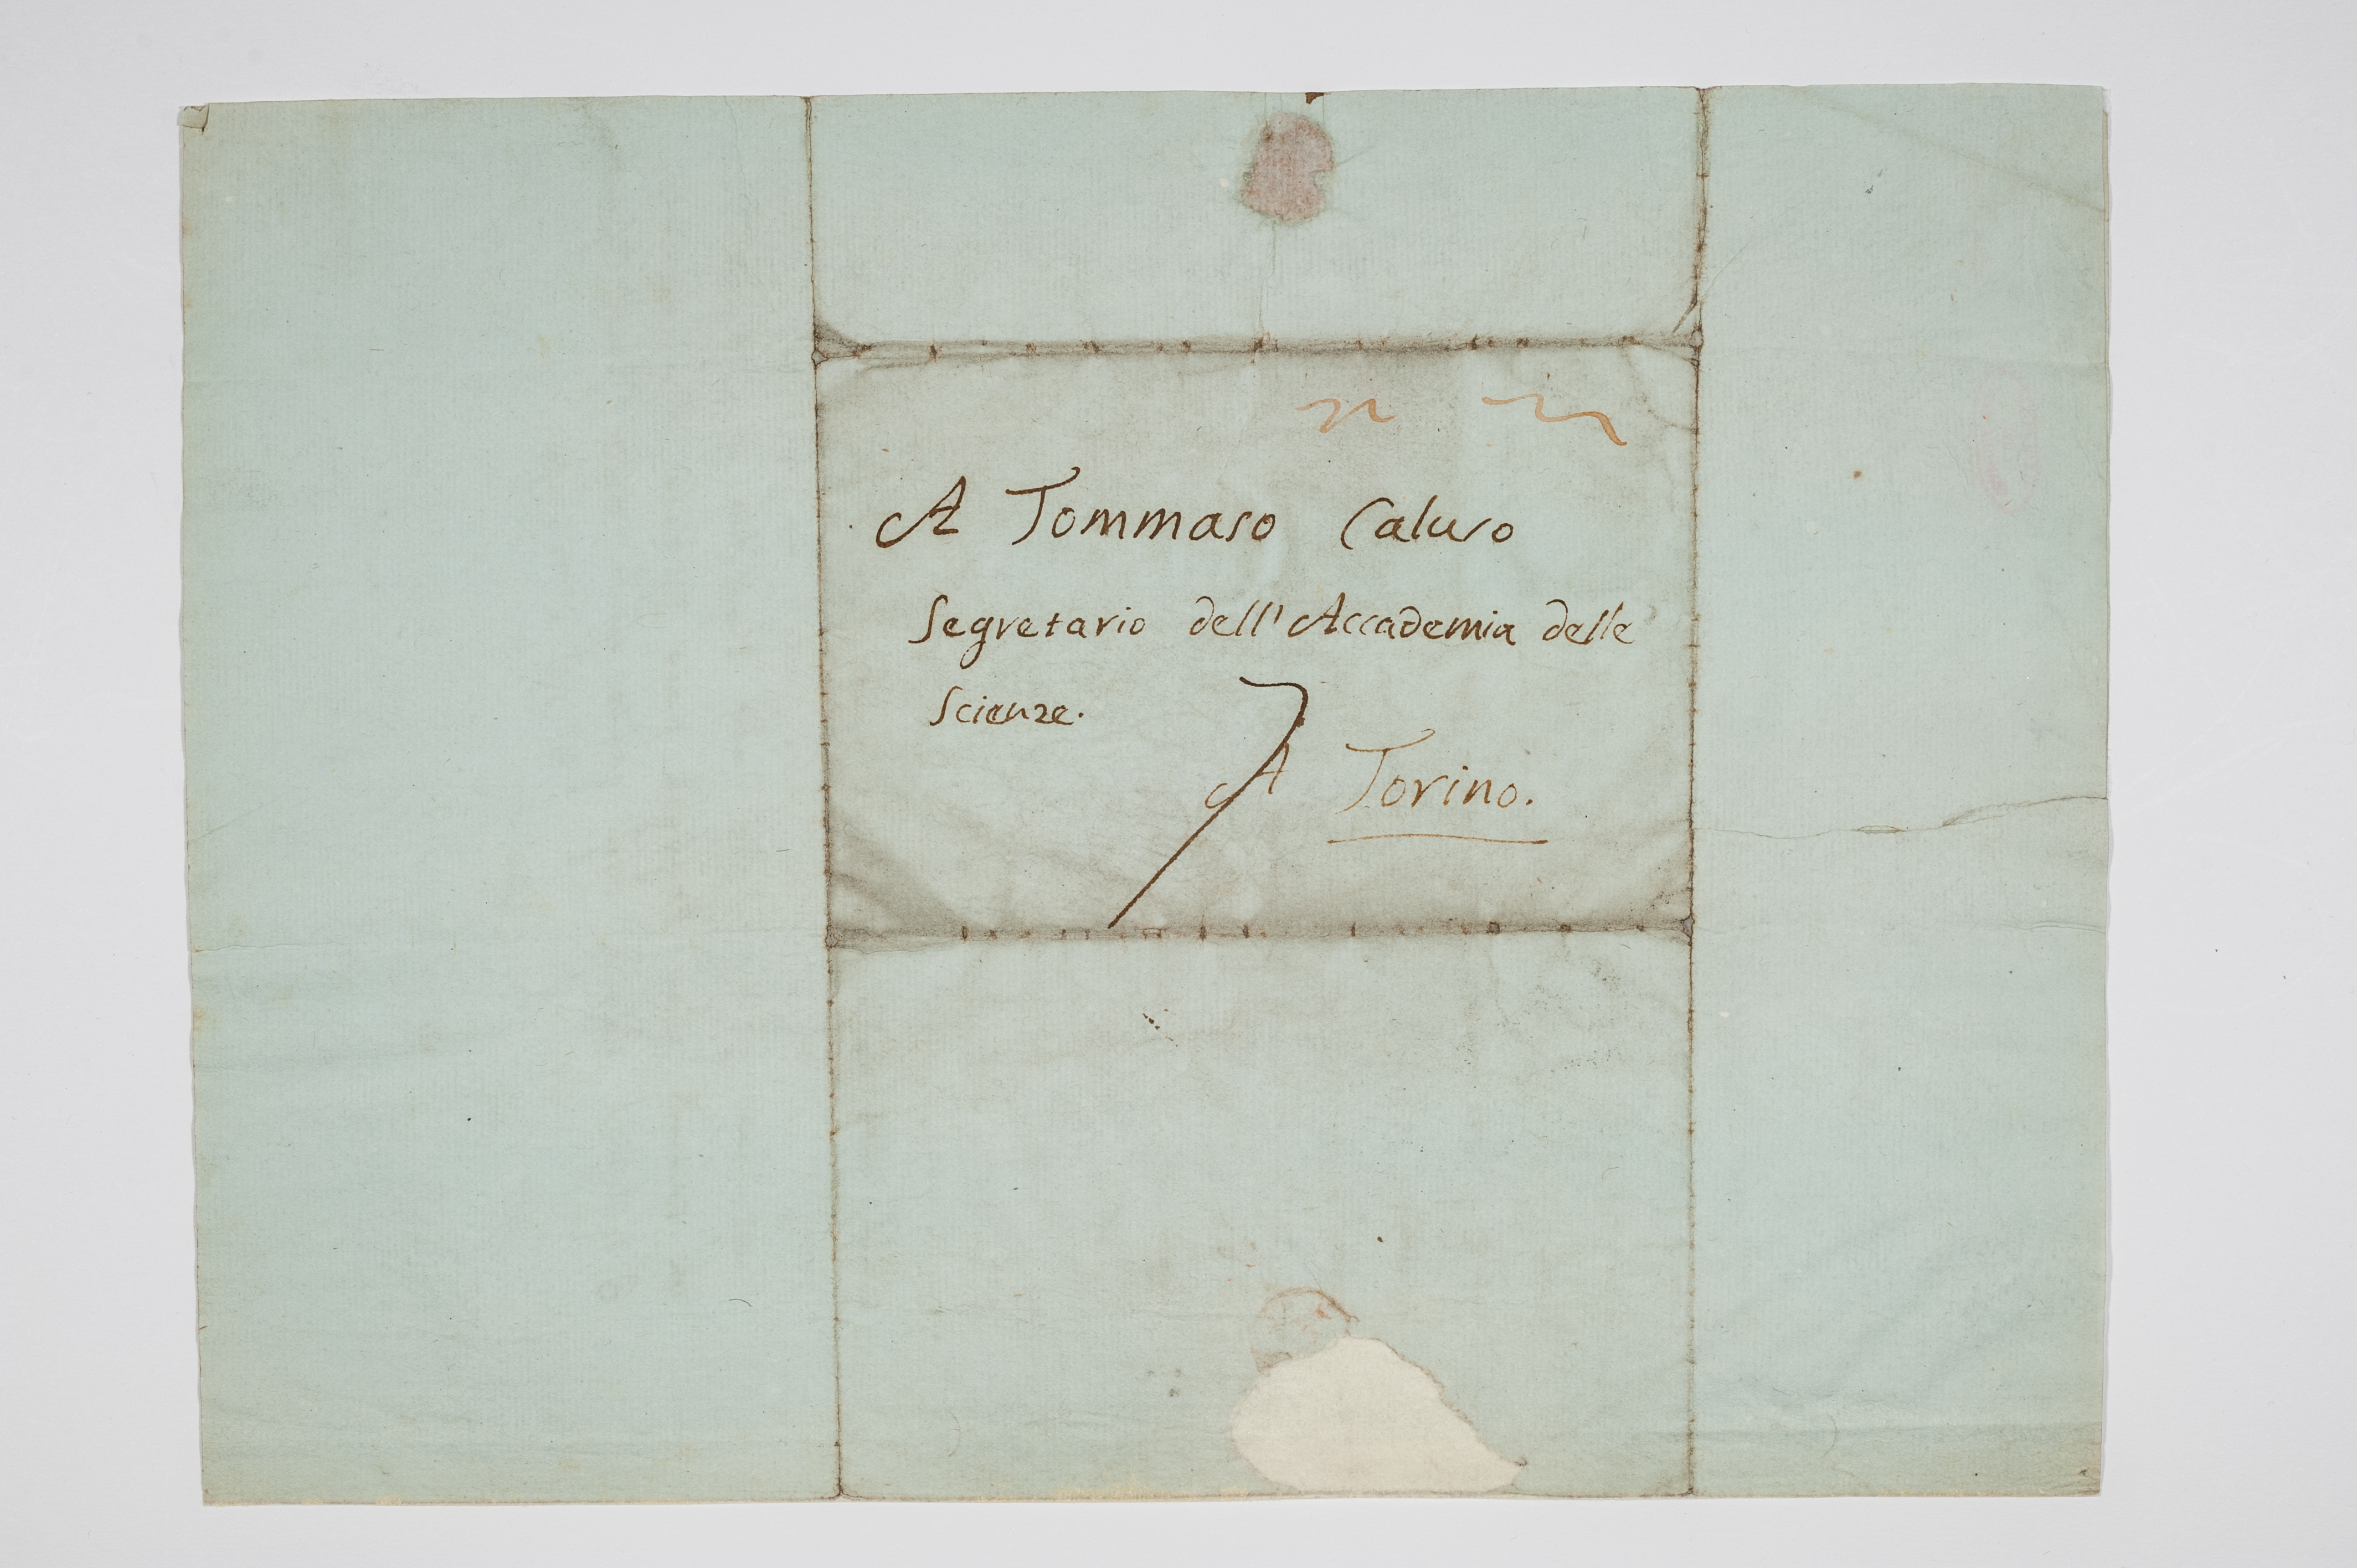 A Tommaso Caluso
Segretario dell'Accademia delle
Scienze.
A Torino.